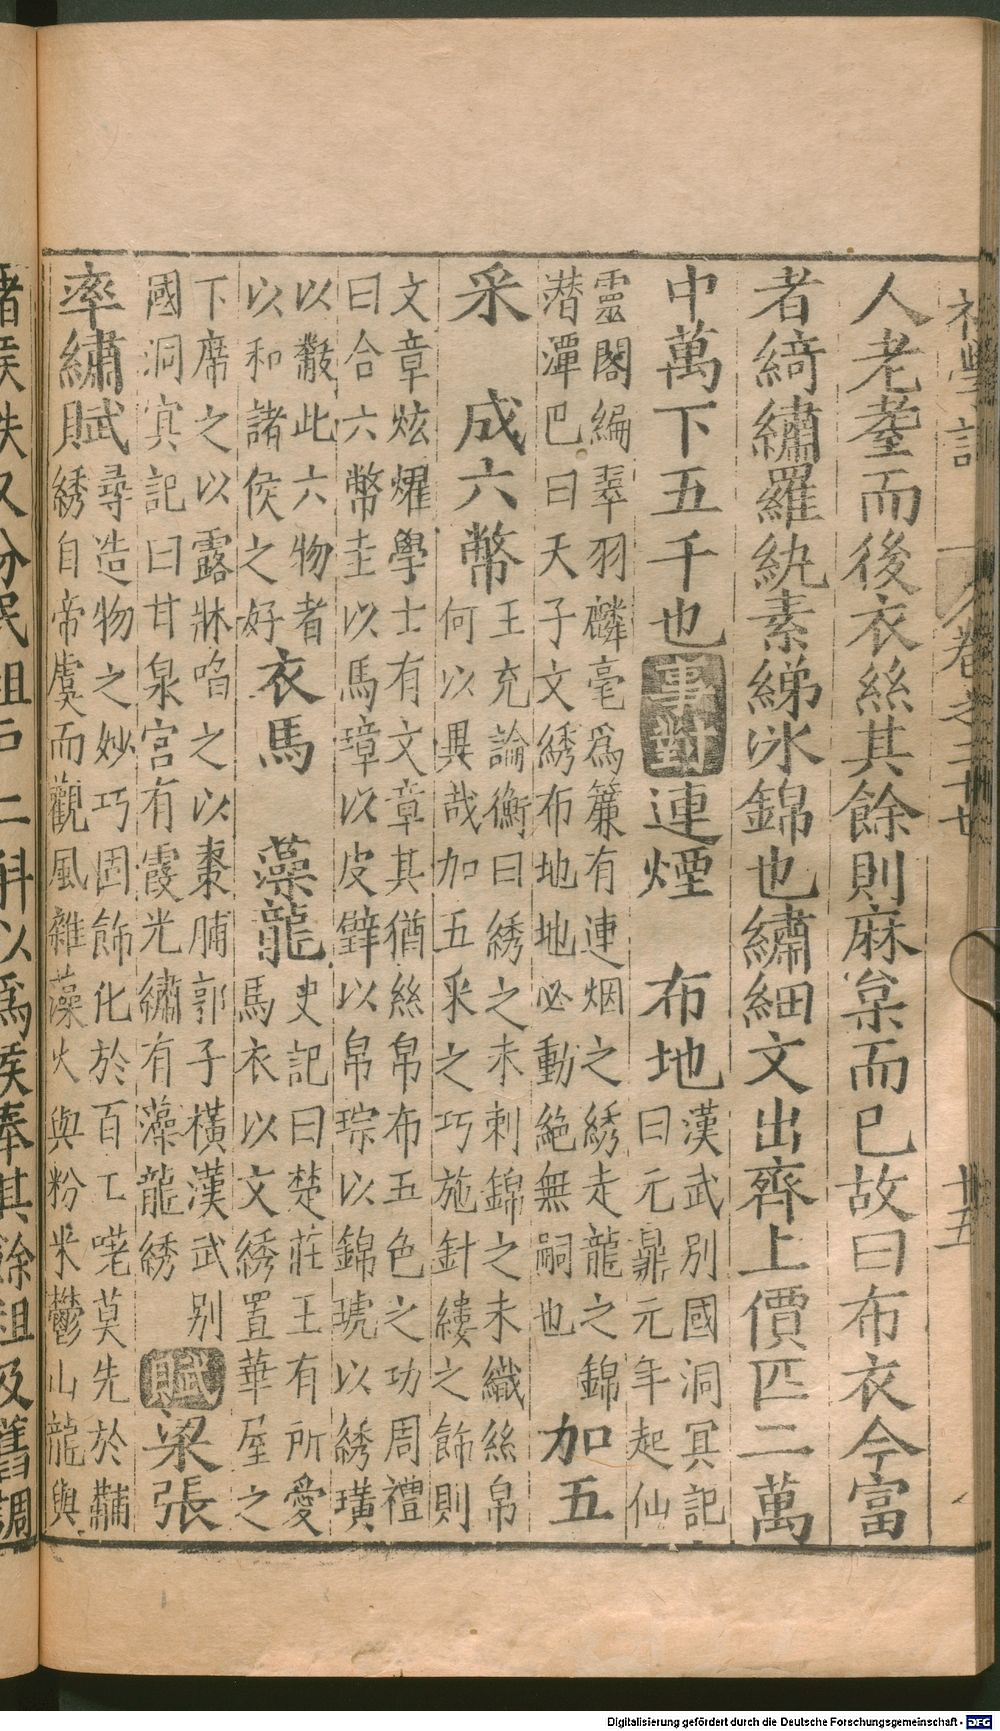 初學記 卷之二十七 十五
人老耋而後衣絲其餘則麻枲而已故曰布衣今富
者綺繡羅紈素綈冰錦也繡細文出齊上價匹二萬
中萬下五千也事對連煙 布地
漢武別國洞冥記
曰元鼎元年起仙
靈閣編翠羽麟毫爲簾有連烟之綉走龍之錦
潜潭巴曰天子文綉布地地必動絶無嗣也
加五
采 成六幣
王充論衡曰綉之未刺錦之未織絲帛
何以異哉加五采之巧施針縷之飾則
文章炫燿學士有文章其猶絲帛布五色之功周禮
曰合六幣圭以馬璋以皮璧以帛琮以錦琥以綉璜
以黻此六物者
以和諸侯之好
衣馬 藻龍
史記曰楚莊王有所愛
馬衣以文綉置華屋之
下席之以露牀啗之以棗脯郭子橫漢武别
國洞冥記曰甘泉宮有霞光繡有藻龍綉
賦梁張
率繡賦
尋造物之妙巧固飾化於百工嗟莫先於黼
綉自帝虞而觀風雜藻火與粉米鬱山龍與
諸侯秩又分民租戶二斛以爲侯奉其餘租及舊調
Digitalisierung gefördert durch die Deutsche Forschungsgemeinschaft - DFG